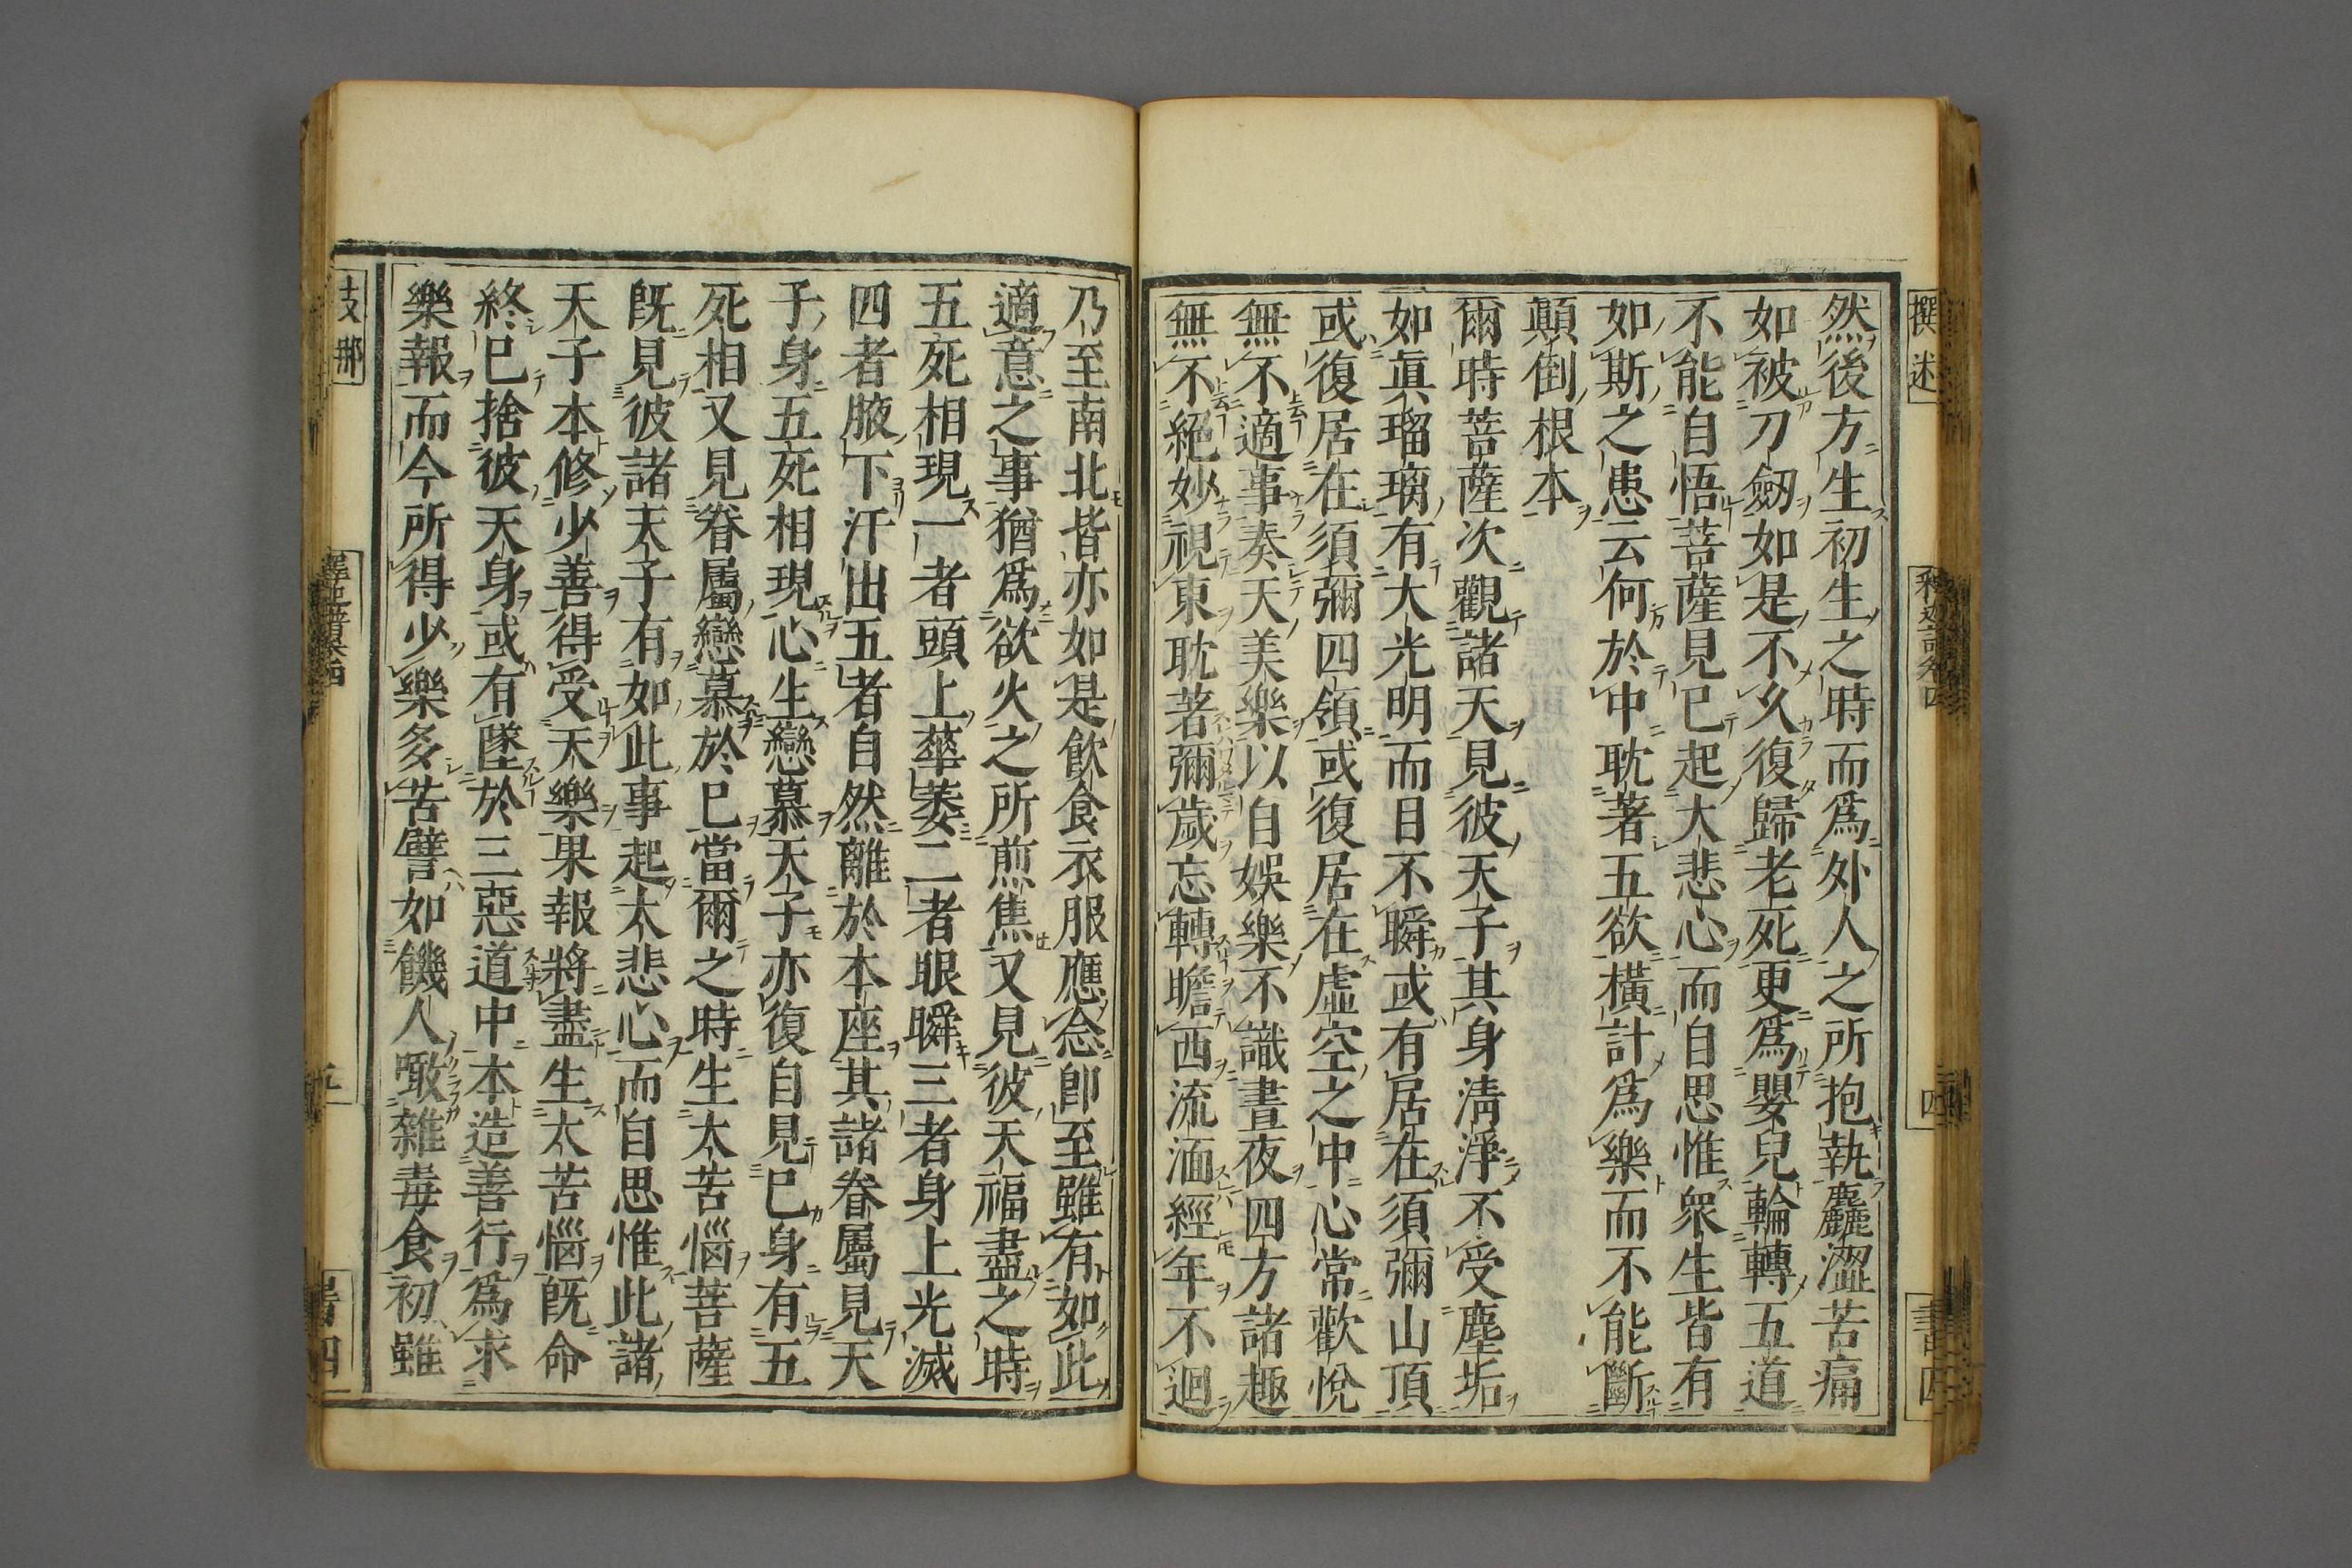 撰述
釋迦譜卷四
四
書四
然後方生初生之時而爲外人之所抱執麤澀苦痛
如被刀劒如是不久復歸老死更爲嬰兒輪轉五道
不能自悟菩薩見已起大悲心而自思惟衆生皆有
如斯之患云何於中耽著五欲橫計爲樂而不能斷
顛倒根本
爾時菩薩次觀諸天見彼天子其身清淨不受塵垢
如眞瑠璃有大光明而目不瞬或有居在須彌山頂
或復居在須彌四領或復居在虛空之中心常歡悅
無不適事奏天美樂以自娛樂不識晝夜四方諸趣
無不絕妙視東耽著彌歲忘轉瞻西流湎經年不迴
乃至南北皆亦如是飮食衣服應念卽至雖有如此
適意之事猶爲欲火之所煎焦又見彼天福盡之時
五死相現一者頭上華萎二者眼瞬三者身上光滅
四者腋下汗出五者自然離於本座其諸眷屬見天
子身五死相現心生戀慕天子亦復自見已身有五
死相又見眷屬戀慕於已當爾之時生大苦惱菩薩
既見彼諸天子有如此事起大悲心而自思惟此諸
天子本修少善得受天樂果報將盡生大苦惱既命
終已捨彼天身或有墜於三惡道中本造善行爲求
樂報而今所得少樂多苦譬如饑人噉雜毒食初雖
支那
五
書四